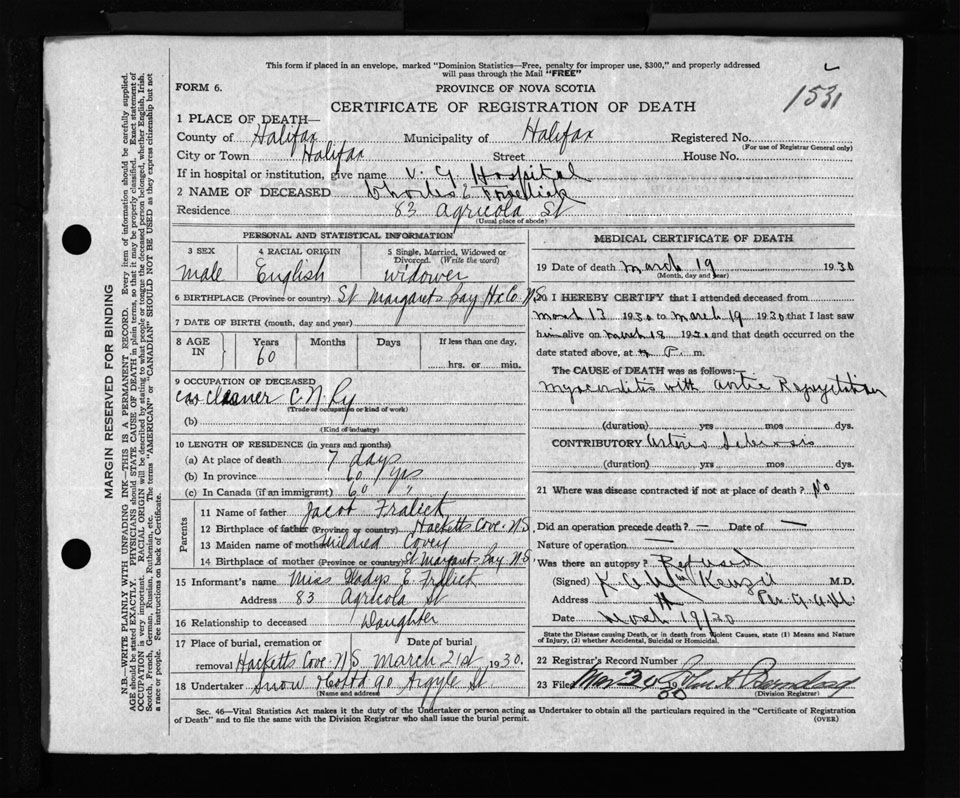 This form if placed in an envelope, marked "Dominion Statistics—Free, penalty for improper use, $300," and properly addressed
will pass through the Mail "FREE"
FORM 6.
PROVINCE OF NOVA SCOTIA
1531
CERTIFICATE OF REGISTRATION OF DEATH
1 PLACE OF DEATH—
County of Halifax Municipality of Halifax Registered No.
(For use of Registrar General only)
City or Town Halifax Street House No.
If in hospital or institution, give name V. G Hospital
2 NAME OF DECEASED Charles E
Residence 83 Agricola St
(Usual place of abode)
PERSONAL AND STATISTICAL INFORMATION
3 SEX 4 RACIAL ORIGIN 5 Single, Married, Widowed or Divorced. (Write the word)
male English widower
6 BIRTHPLACE (Province or country) St Margarets Bay Hx Co. N.S.
7 DATE OF BIRTH (month, day and year)
8 AGE IN Years Months Days If less than one day,
60 hrs. or min.
9 OCCUPATION OF DECEASED
car cleaner C. N. Ry
(Trade or occupation or kind of work)
(b)
(Kind of industry)
10 LENGTH OF RESIDENCE (in years and months)
(a) At place of death 7 days
(b) In province 60 yrs
(c) In Canada (if an immigrant) 60 "
Parents
11 Name of father Jacob Fralick
12 Birthplace of father (Province or country) Hacketts Cove N.S
13 Maiden name of mother Mildred Covey
14 Birthplace of mother (Province or country) St Margarets Bay N.S
15 Informant's name Miss Gladys E. Fralick
Address 83 Agricola St
16 Relationship to deceased Daughter
17 Place of burial, cremation or Date of burial
removal Hacketts Cove N S March 21st 1930.
18 Undertaker Snow 90 Argyle St
(Name and address)
MEDICAL CERTIFICATE OF DEATH
19 Date of death March 19 1930
(Month, day and year)
20 I HEREBY CERTIFY that I attended deceased from
March 13 1930 to March 19 1930 that I last saw
him alive on March 18 1930 and that death occurred on
the date stated above, at P. m.
The CAUSE of DEATH was as follows:
Myocarditis with Aortic Regurgitation
(duration) yrs mos dys.
CONTRIBUTORY Arterio Sclerosis
(duration) yrs. mos. dys.
21 Where was disease contracted if not at place of death? No
Did an operation precede death? — Date of —
Nature of operation —
Was there an autopsy? Refused
(Signed) M.D.
Address
Date March 19/30
State the Disease causing Death, or in death from Violent Causes, state (1) Means and Nature
of Injury, (2) whether Accidental, Suicidal or Homicidal.
22 Registrar's Record Number
23 Filed Mar 24 30 John A
(Division Registrar)
Sec. 46—Vital Statistics Act makes it the duty of the Undertaker or person acting as Undertaker to obtain all the particulars required in the "Certificate of Registration
of Death" and to file the same with the Division Registrar who shall issue the burial permit.
(OVER)
MARGIN RESERVED FOR BINDING
N.B.—WRITE PLAINLY WITH UNFADING INK—THIS IS A PERMANENT RECORD. Every item of information should be carefully supplied.
AGE should be stated EXACTLY. PHYSICIANS should STATE CAUSE OF DEATH in plain terms, so that it may be properly classified. Exact statement of
OCCUPATION is very important. RACIAL ORIGIN will be described by stating to what people or tongue the deceased person belonged, whether English, Irish,
Scotch, French, German, Russian, Ruthenian, etc. The terms "AMERICAN" or "CANADIAN" SHOULD NOT BE USED as they express citizenship but not
a race or people. See instructions on back of Certificate.